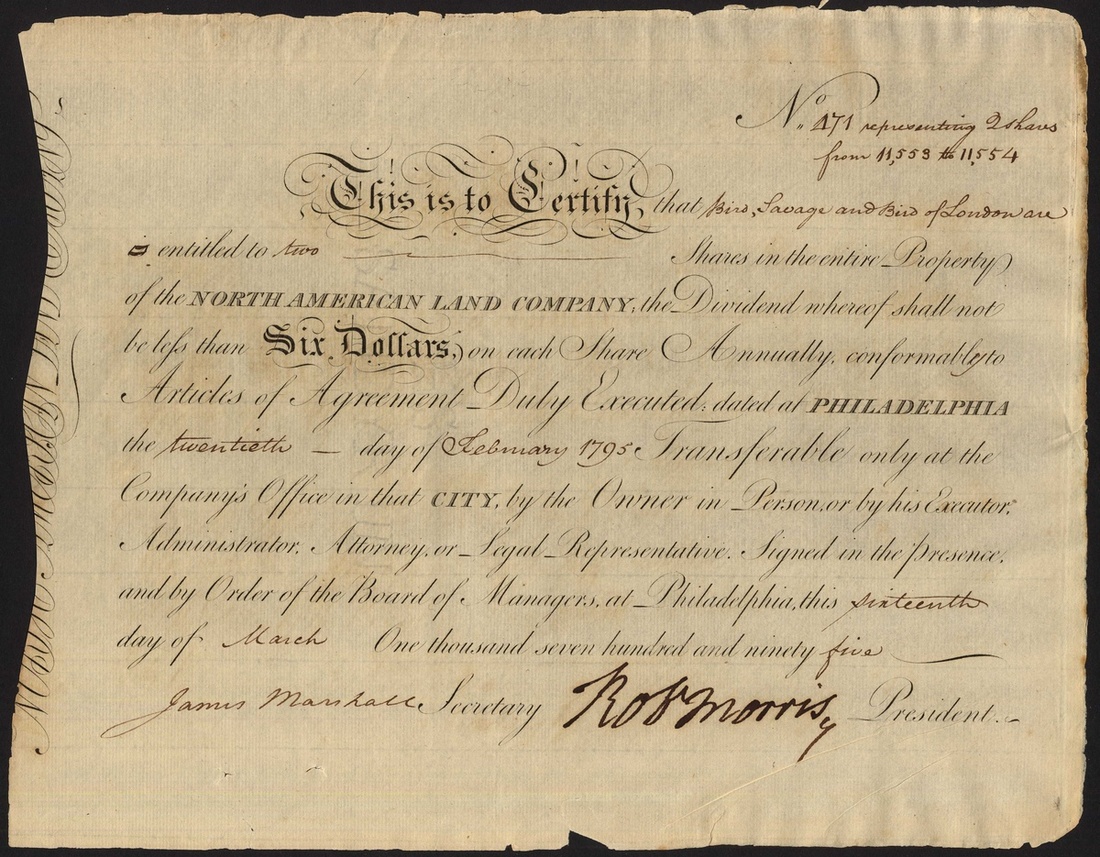 No. 471 representing 2 shares
from 11,553 to 11,554
This is to Certify, that Bird, Savage and Bird of London are
is entitled to two Shares in the entire Property
of the NORTH AMERICAN LAND COMPANY; the Dividend whereof shall not
be less than Six Dollars, on each Share Annually, conformably to
Articles of Agreement Duly Executed; dated at PHILADELPHIA
the twentieth — day of February 1795 Transferable only at the
Company's Office in that CITY, by the Owner in Person, or by his Executor,
Administrator, Attorney, or Legal Representative. Signed in the presence,
and by Order of the Board of Managers, at Philadelphia, this sixteenth
day of March One thousand seven hundred and ninety five
James Marshall Secretary Rob Morris President.
NORTH AMERICAN LAND COMPANY